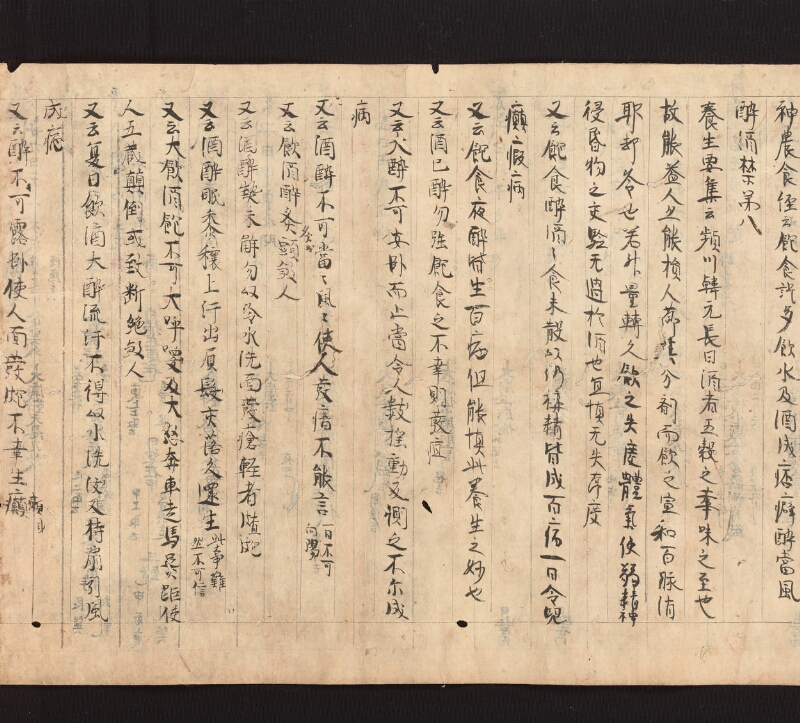 神農食經云飽食訖多飲水及酒成痞癖醉當風
醉酒禁第八
養生要集云頻川韓元長曰酒者五穀之華味之至也
故能益人亦能損人節其分劑而飲之宣和百脉消
耶却冷也若升量轉久飲之失度體氣使弱精神
侵昏物之交驗无過於酒也宜慎无失節度
又云飽食醉酒〻食未散以仍構精皆成百病一曰令兒
癲瘕病
又云飽食夜醉皆生百病但能慎此養生之妙也
又云酒已醉勿強飽食之不幸則發疽
又云大醉不可安臥而止當令人數搖動反側之不尔成
病
又云酒醉不可當〻風〻使人發瘖不能言 一曰不可向陽
又云飲酒醉灸頭煞人
又云酒醉熱未解勿以冷水洗面發瘡輕者皶皰
又云酒醉眠黍穰上汗出眉髮交落久還生 此事難然不可信
又云大飲酒飽不可大呼喚及大怒奔車走馬 距使
人五藏顛倒或致斷絕煞人
又云夏日飲酒大醉流汗不得以水洗及持扇引風
成病
又云醉不可露臥使人面發皰不幸生癩